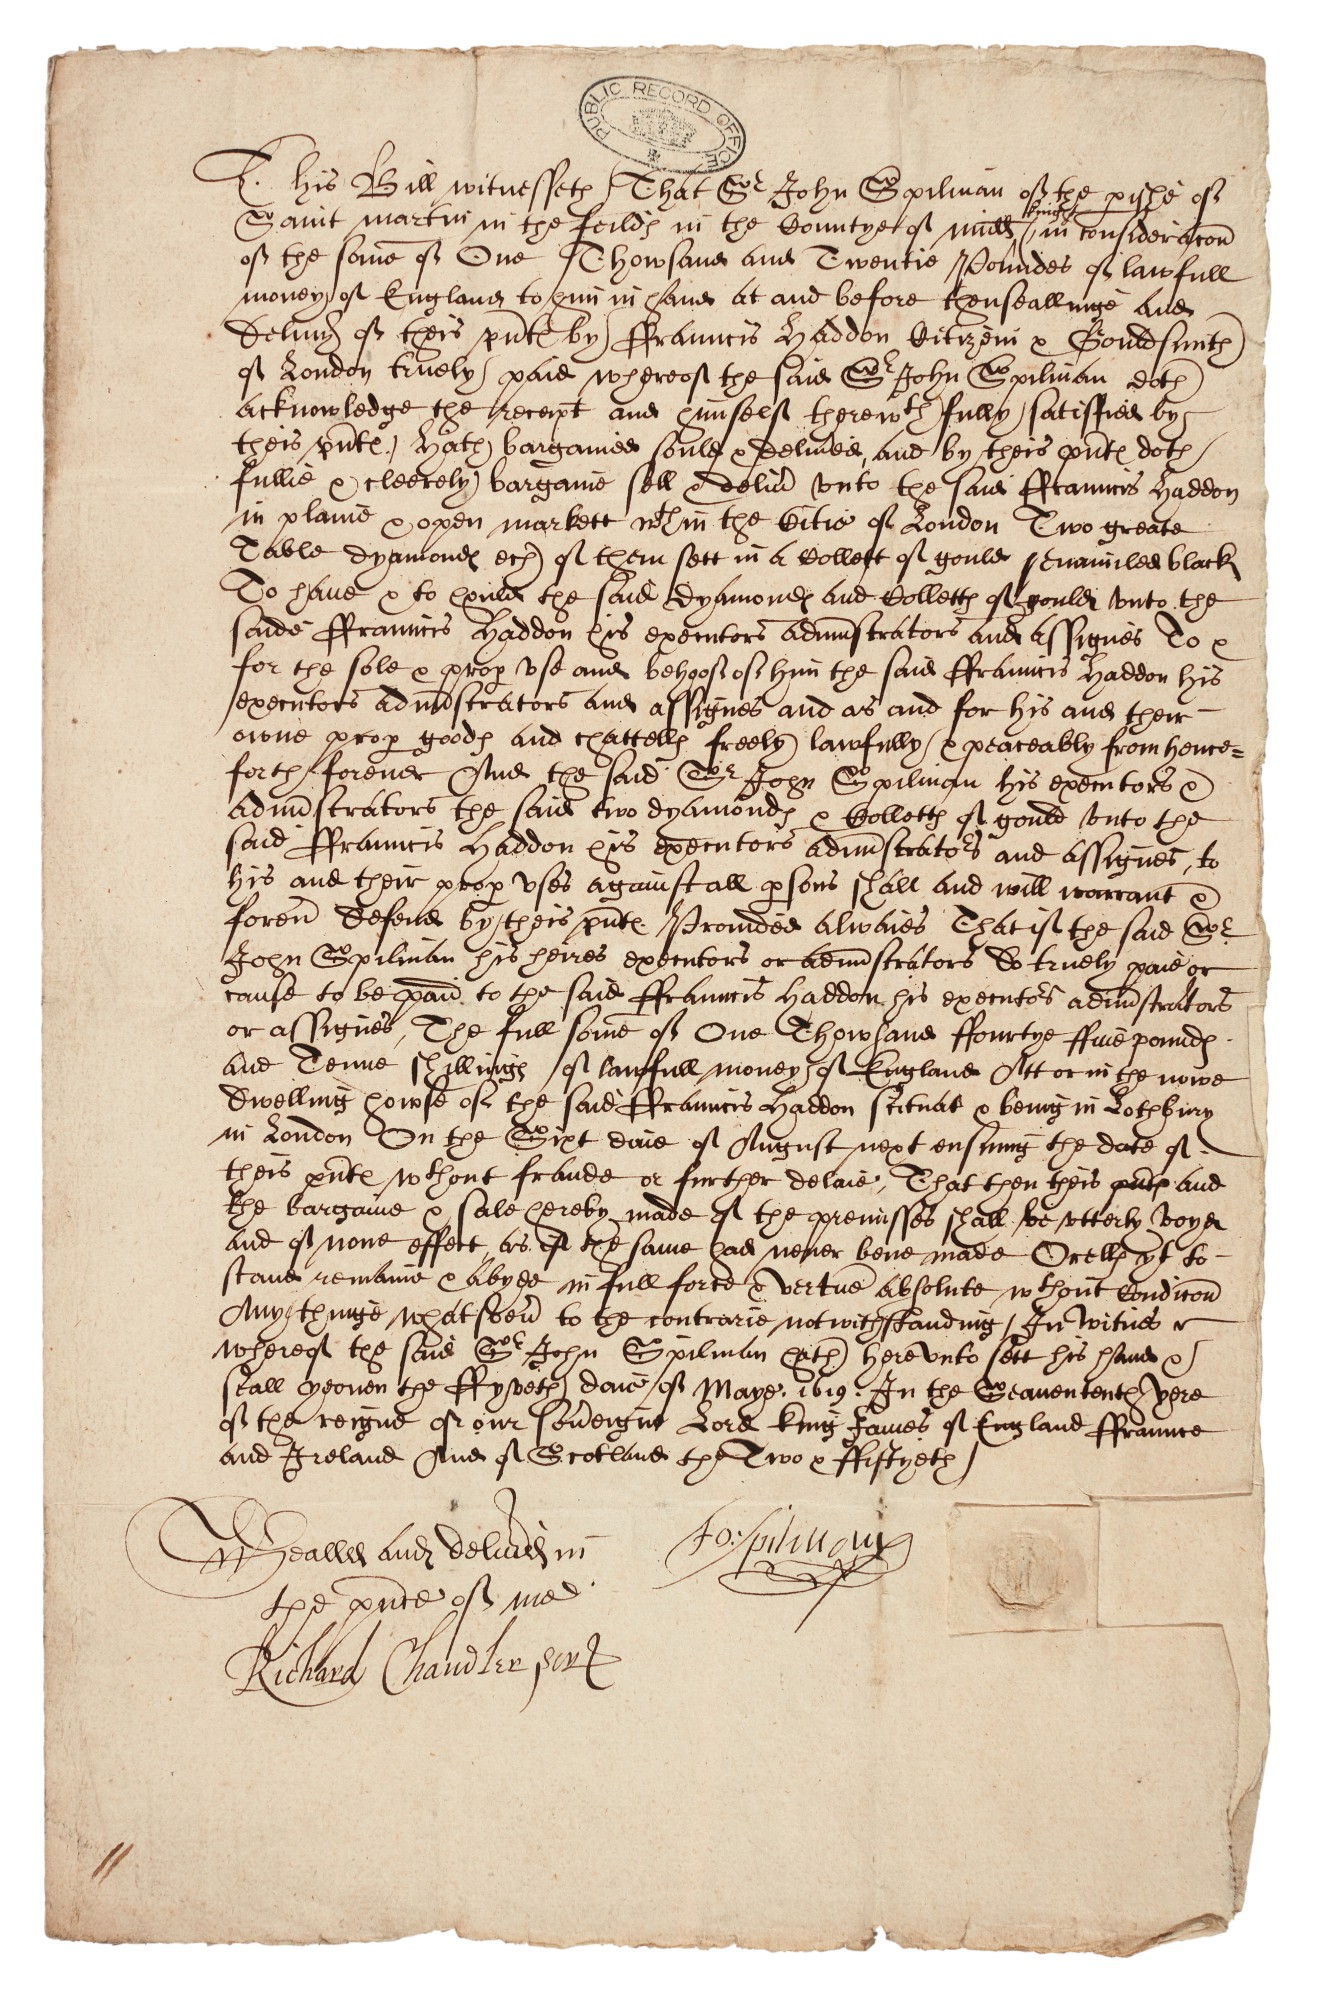 PUBLIC RECORD OFFICE
This Bill witnesseth That Sr John Spilman of the pishe of
Saint martin in the feildes in the Countye of midd knight in consideracon
of the some of One Thowsand and Twentie Poundes of lawfull
money of England to him in hand at and before thenseallinge and
deliuy of theis pnts by Ffrauncis Haddon Citizein & Gouldsmith
of London truely paid whereof the said Sr John Spilman doth
acknowledge the receipt and himself therewth fully satisfied by
theis pnts Hath bargained sould & deliued, and by theis pnts doth
fullie & cleerely bargaine sell & deliu vnto the said Ffrauncis Haddon
in plaine & open markett wthin the Citie of London Two greate
Table dyamondes ech of them sett in a Collett of gould enamiled black
To haue & to hould the said dyamondes and Collettes of gould vnto the
saide Ffrauncis Haddon his executors administrators and assignes To &
for the sole & prop vse and behoof of him the said Ffrauncis Haddon his
executors administrators and assignes and as and for his and their
owne prop goodes and chattelles freely lawfully & peaceably from hence=
forth foreuer And the said Sr John Spilman his executors &
administrators the said two dyamondes & Collettes of gould vnto the
said Ffrauncis Haddon his executors administrators and assignes, to
his and their prop vses against all psons shall and will warrant &
foreu defend by theis pnts Prouided alwaies That if the said Sr
John Spilman his heires executors or administrators Do truely paie or
cause to be paid to the said Ffrauncis Haddon his executors administrators
or assignes, The full some of One Thowsand ffourtye ffiue poundes
and Tenne shillinges of lawfull money of England Att or in the nowe
dwelling howse of the said Ffrauncis Haddon scituat & being in Lothbury
in London On the Sixt daie of August next ensuing the date of
theis pnts wthout fraude or further delaie, That then theis pnts and
the bargaine & sale hereby made of the premisses shall be vtterly voyd
and of none effect as if the same had neuer bene made Or ells yt to
stand remaine & abyde in full force & vertue absolute wthout Condicon
Any thinge whatsoeu to the contrarie notwithstanding In witnes
whereof the said Sr John Spilman hath herevnto sett his hand &
seall yeouen the Ffyveth daie of Maye 1619. In the Seauententh yere
of the reigne of our soueigne Lord King James of England Ffraunce
and Ireland And of Scotland the Two & Ffiftyeth
Sealled and deliued in
the pnce of me
Richard Chandler scr
Jo: Spilman